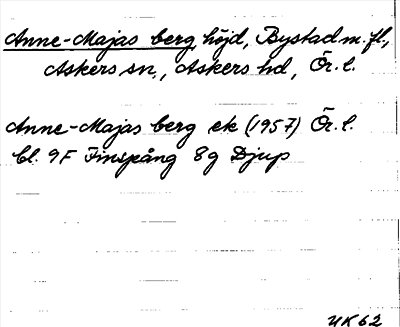 Anne-Majas berg, höjd, Bystad m.fl.,
Askers sn, Askers hd, Ör. l.
Anne-Majas berg ek (1957) Ör. l.
bl. 9F Finspång 8g Djup
UK62